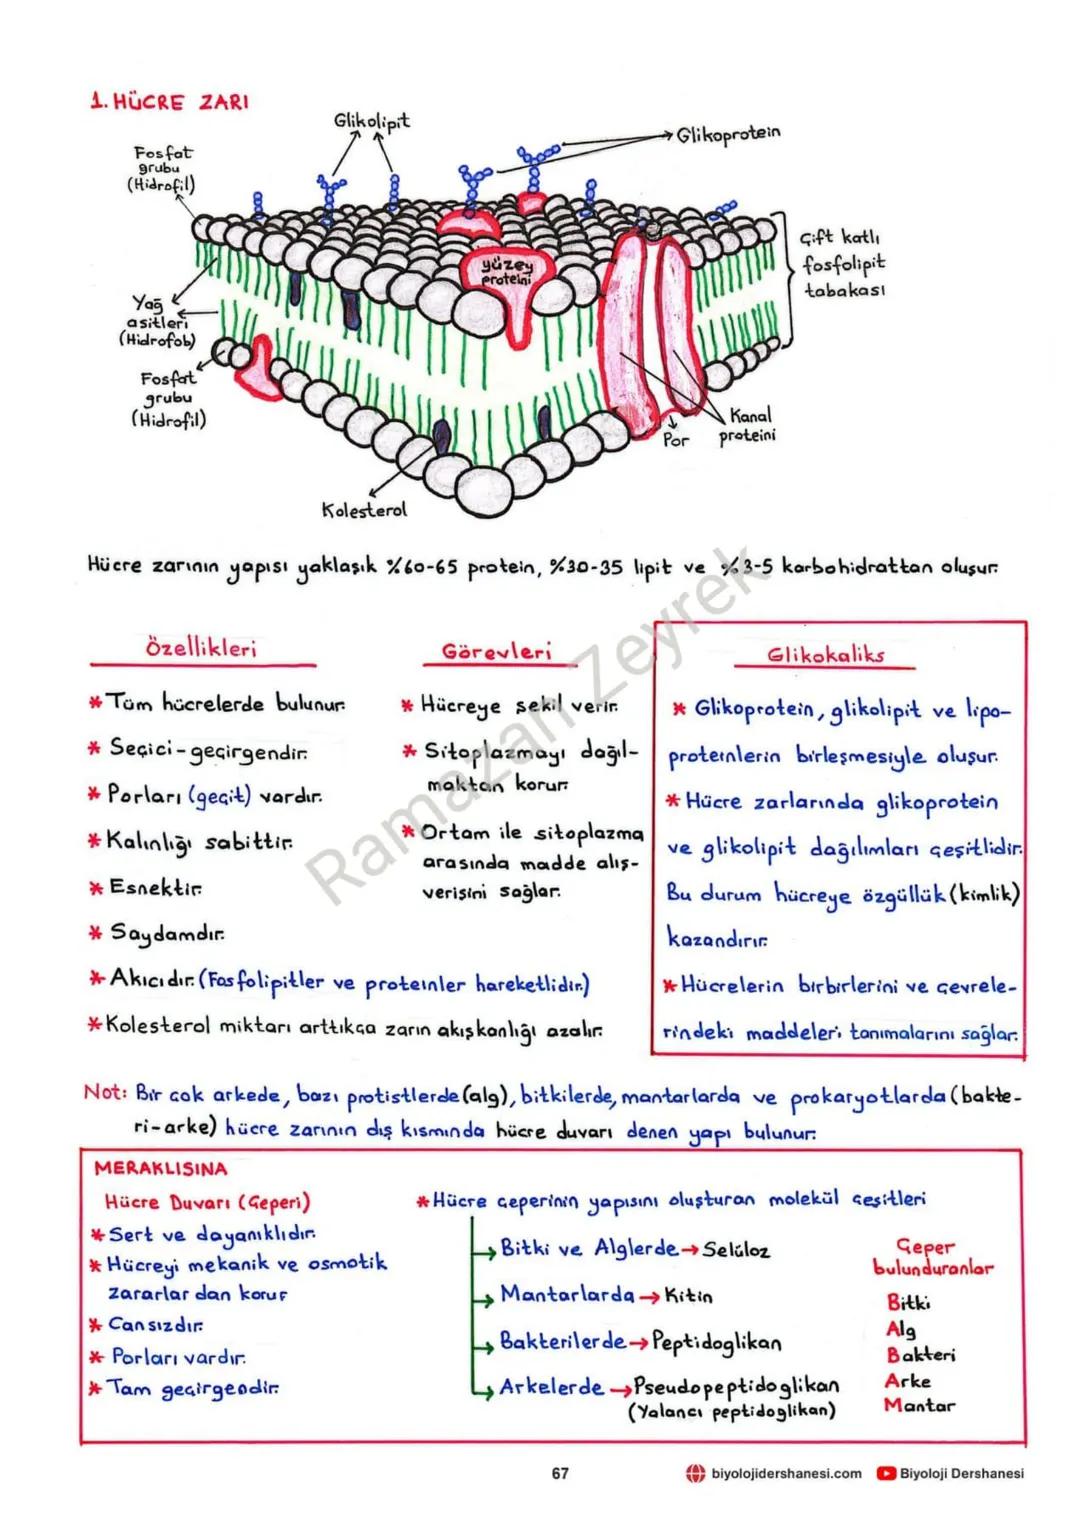 1. HÜCRE ZARI
Glikolipit
Glikoprotein
Fosfat
grubu
(Hidrofil)
Çift katlı
fosfolipit
tabakası
yüzey
proteini
Yağ
asitleri
(Hidrofob)
Fosfat
grubu
(Hidrofil)
Kanal
proteini
Por
Kolesterol
Hücre zarının yapısı yaklaşık %60-65 protein, %30-35 lipit ve %3-5 karbohidrattan oluşur.
Özellikleri
* Tüm hücrelerde bulunur.
* Seçici-geçirgendir.
* Porları (geçit) vardır.
* Kalınlığı sabittir.
* Esnektir.
* Saydamdır.
* Akıcıdır. (Fosfolipitler ve proteinler hareketlidir.)
* Kolesterol miktarı arttıkça zarın akışkanlığı azalır.
Görevleri
* Hücreye şekil verir.
* Sitoplazmayı dağıl-
maktan korur.
* Ortam ile sitoplazma
arasında madde alış-
verişini sağlar.
Glikokaliks
* Glikoprotein, glikolipit ve lipo-
proteinlerin birleşmesiyle oluşur.
* Hücre zarlarında glikoprotein
ve glikolipit dağılımları çeşitlidir.
Bu durum hücreye özgüllük (kimlik)
kazandırır.
* Hücrelerin birbirlerini ve çevrele-
rindeki maddeleri tanımalarını sağlar.
Ramazan Zeyrek
Not: Bir çok arkede, bazı protistlerde (alg), bitkilerde, mantarlarda ve prokaryotlarda (bakte-
ri-arke) hücre zarının dış kısmında hücre duvarı denen yapı bulunur.
MERAKLISINA
Hücre Duvarı (Çeperi)
* Sert ve dayanıklıdır.
* Hücreyi mekanik ve osmotik
zararlar dan korur
* Cansızdır.
* Porları vardır.
* Tam geçirgendir.
* Hücre çeperinin yapısını oluşturan molekül çeşitleri
→ Bitki ve Alglerde → Selüloz
→ Mantarlarda → Kitin
→ Bakterilerde → Peptidoglikan
→ Arkelerde → Pseudopeptidoglikan
(Yalancı peptidoglikan)
Çeper
bulunduranlar
Bitki
Alg
Bakteri
Arke
Mantar
67
biyolojidershanesi.com
Biyoloji Dershanesi